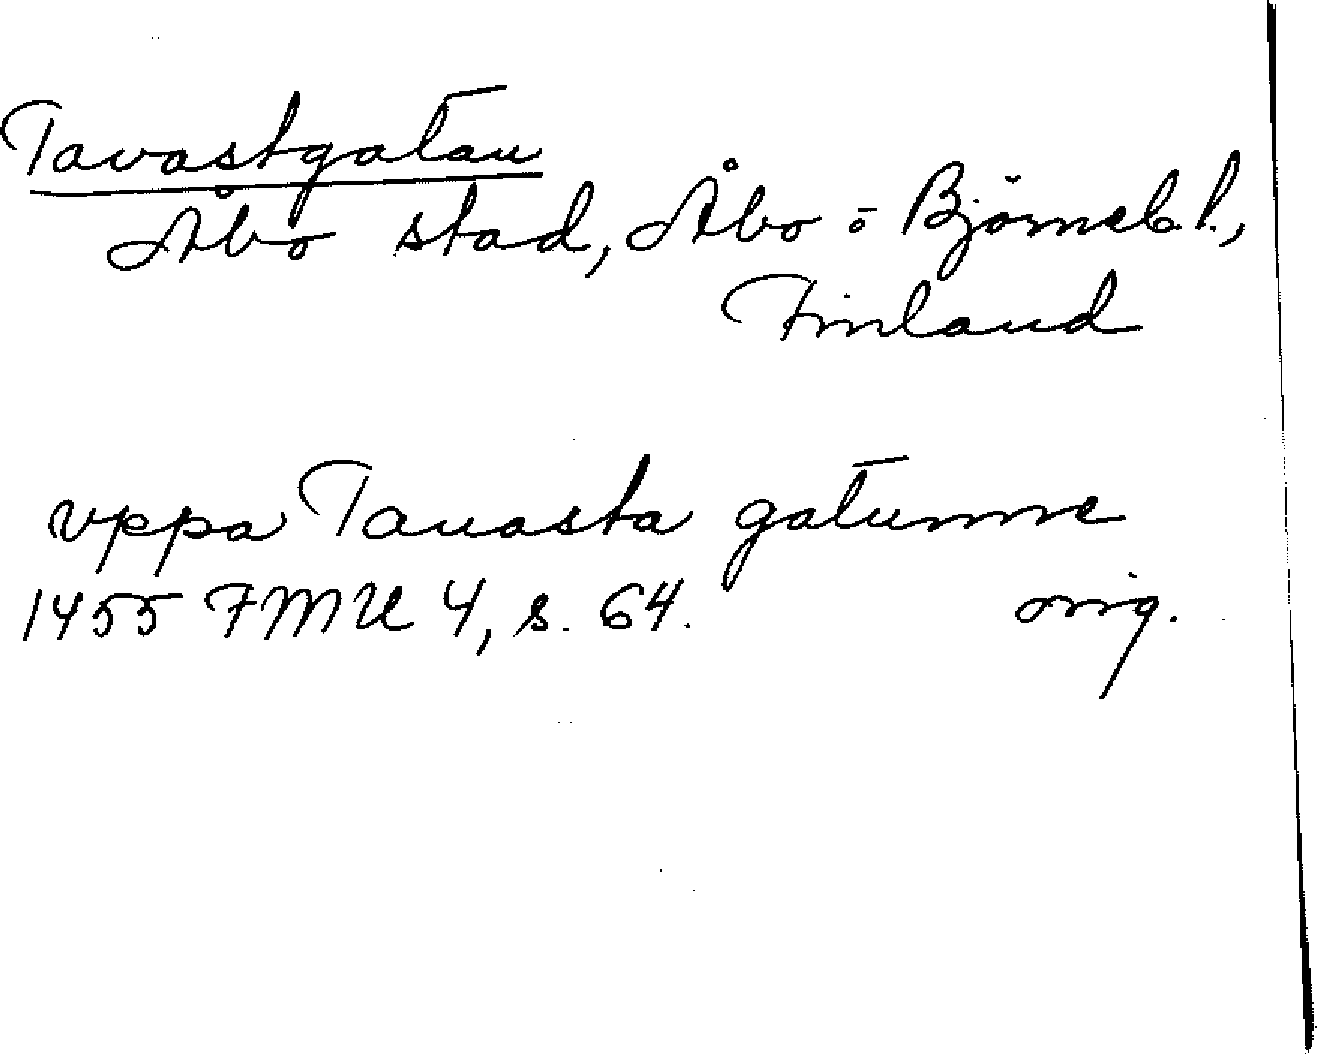 Tavastgatan
Åbo stad, Åbo o Björneb. l.,
Finland
vppa Tauasta gatunne
1455 FMU 4, s. 64. orig.